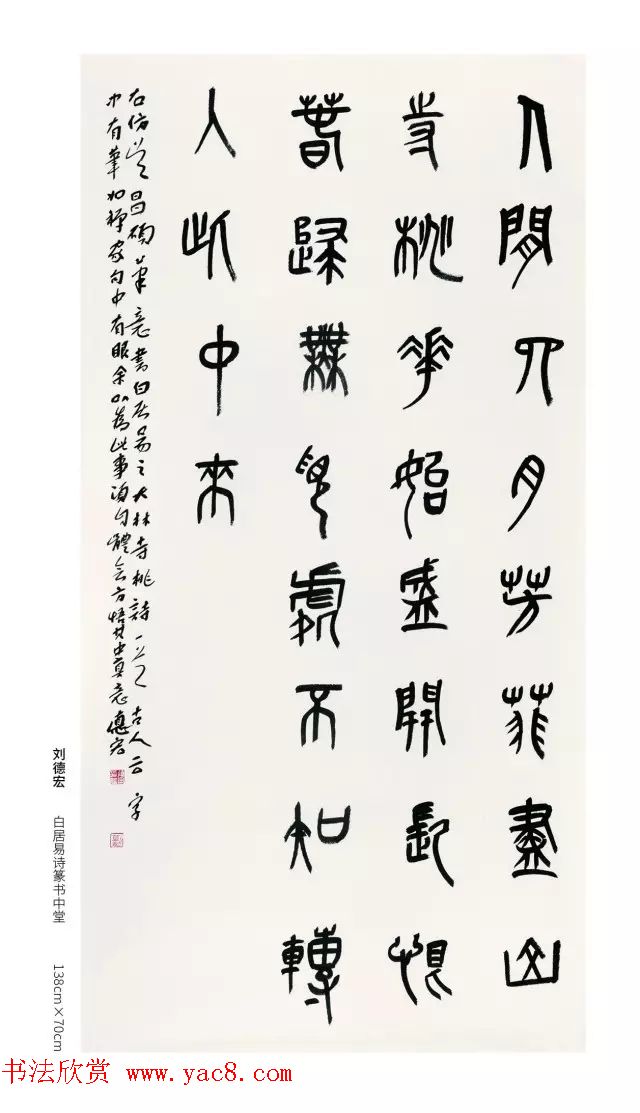 人間四月芳菲盡山
寺桃花始盛開長恨
春歸無覓處不知轉
入此中來
右仿吳昌碩筆意書白居易之大林寺桃詩一首古人云字
中有筆如禪家句中有眼余以為此事須自體會方悟其中真意德宏
刘德宏 白居易诗篆书中堂 138cm×70cm
书法欣赏 www.yac8.com